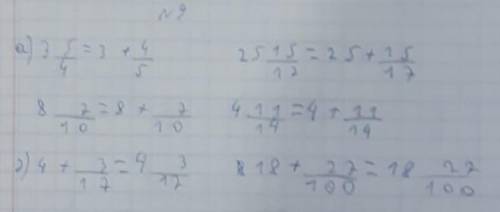 №9
а) 3 5/4 = 3 + 4/5    25 15/17 = 25 + 15/17
8 7/10 = 8 + 7/10    4 11/14 = 4 + 11/14
б) 4 + 3/17 = 4 3/17    18 + 27/100 = 18 27/100